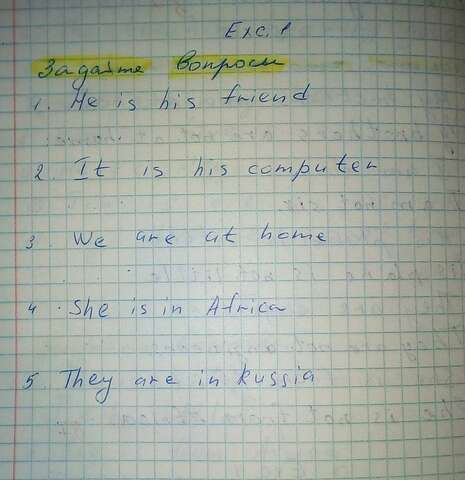 Exc. 1
Задайте Вопросы
1. He is his friend
2. It is his computer
3 We are at home
4. She is in Africa
5. They are in Russia